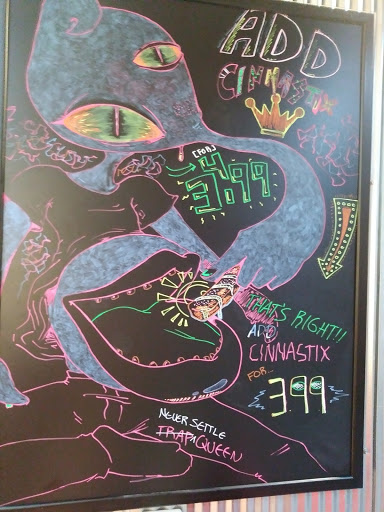 ADD
CINNASTIX
[FOR]
3.99
THAT'S RIGHT!!
ADD
CINNASTIX
FOR...
3.99
NEVER SETTLE
TRAP QUEEN